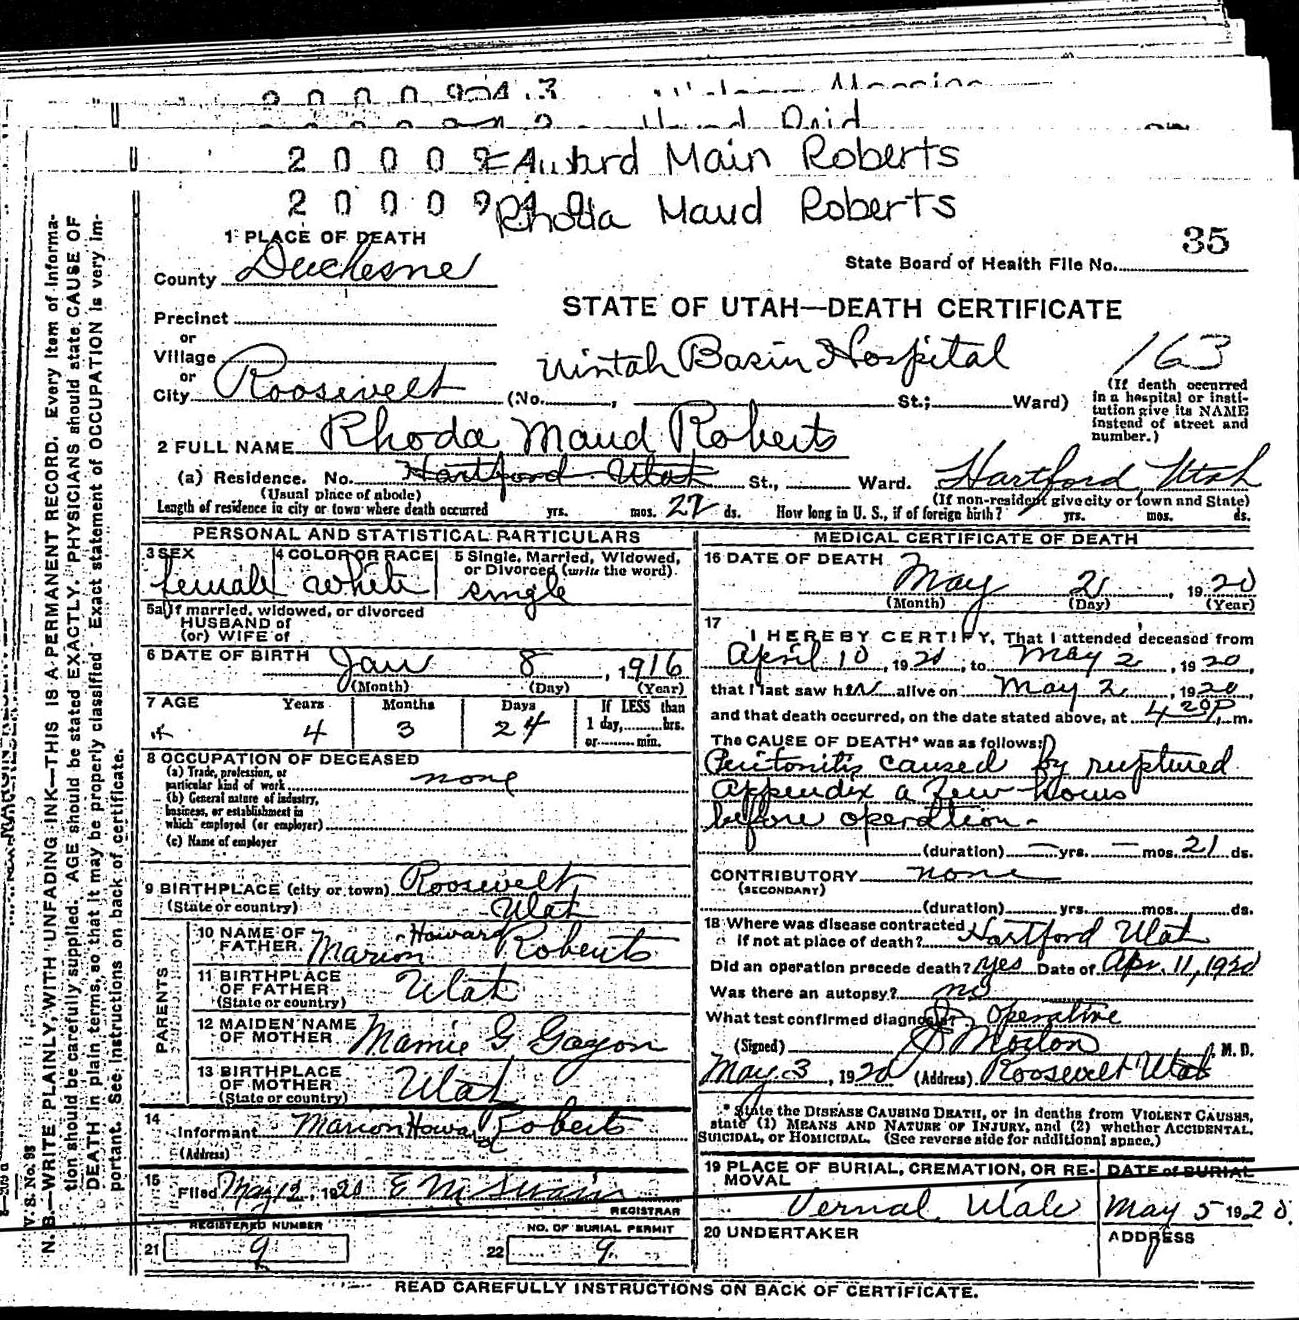 Main Roberts
Rhoda Maud Roberts
35
1 PLACE OF DEATH
County Duchesne
State Board of Health File No.
STATE OF UTAH—DEATH CERTIFICATE
Precinct
or
Village
or
City Roosevelt
Uintah Basin Hospital
163
(No. , St.; Ward)
(If death occurred
in a hospital or insti-
tution give its NAME
instead of street and
number.)
2 FULL NAME Rhoda Maud Roberts
(a) Residence. No. Hartford Utah St., Ward. Hartford, Utah
(Usual place of abode)
(If non-resident give city or town and State)
Length of residence in city or town where death occurred yrs. mos. 22 ds. How long in U. S., if of foreign birth? yrs. mos. ds.
PERSONAL AND STATISTICAL PARTICULARS
3 SEX
female
4 COLOR OR RACE
white
5 Single, Married, Widowed,
or Divorced (write the word).
single
5a If married, widowed, or divorced
HUSBAND of
(or) WIFE of
6 DATE OF BIRTH Jan 8, 1916
(Month) (Day) (Year)
7 AGE Years Months Days If LESS than
4 3 24 1 day, hrs.
or min.
8 OCCUPATION OF DECEASED
(a) Trade, profession, or
particular kind of work none
(b) General nature of industry,
business, or establishment in
which employed (or employer)
(c) Name of employer
9 BIRTHPLACE (city or town) Roosevelt
(State or country) Utah
PARENTS
10 NAME OF
FATHER Marion Howard Roberts
11 BIRTHPLACE
OF FATHER
(State or country) Utah
12 MAIDEN NAME
OF MOTHER Mamie G Gagon
13 BIRTHPLACE
OF MOTHER
(State or country) Utah
14
Informant Marion Howard Roberts
(Address)
15
Filed May 12, 1920 E M Swain
REGISTRAR
REGISTERED NUMBER
21 9
NO. OF BURIAL PERMIT
22 9
MEDICAL CERTIFICATE OF DEATH
16 DATE OF DEATH
May 2, 1920
(Month) (Day) (Year)
17
I HEREBY CERTIFY, That I attended deceased from
April 10, 1920, to May 2, 1920,
that I last saw her alive on May 2, 1920,
and that death occurred, on the date stated above, at 4 20 P. m.
The CAUSE OF DEATH* was as follows:
Peritonitis caused by ruptured
Appendix a few hours
before operation-
(duration) — yrs. — mos. 21 ds.
CONTRIBUTORY none
(SECONDARY)
(duration) yrs. mos. ds.
18 Where was disease contracted
if not at place of death? Hartford Utah
Did an operation precede death? yes Date of Apr. 11, 1920
Was there an autopsy? no
What test confirmed diagnosis? Operative
(Signed) J Morton, M. D.
May 3, 1920 (Address) Roosevelt Utah
* State the DISEASE CAUSING DEATH, or in deaths from VIOLENT CAUSES,
state (1) MEANS AND NATURE OF INJURY, and (2) whether ACCIDENTAL,
SUICIDAL, or HOMICIDAL. (See reverse side for additional space.)
19 PLACE OF BURIAL, CREMATION, OR RE-
MOVAL
Vernal Utah
DATE of BURIAL
May 5 1920.
20 UNDERTAKER
ADDRESS
READ CAREFULLY INSTRUCTIONS ON BACK OF CERTIFICATE.
V. S. No. 98
N. B.—WRITE PLAINLY, WITH UNFADING INK—THIS IS A PERMANENT RECORD. Every item of informa-
tion should be carefully supplied. AGE should be stated EXACTLY. PHYSICIANS should state CAUSE OF
DEATH in plain terms, so that it may be properly classified. Exact statement of OCCUPATION is very im-
portant. See instructions on back of certificate.